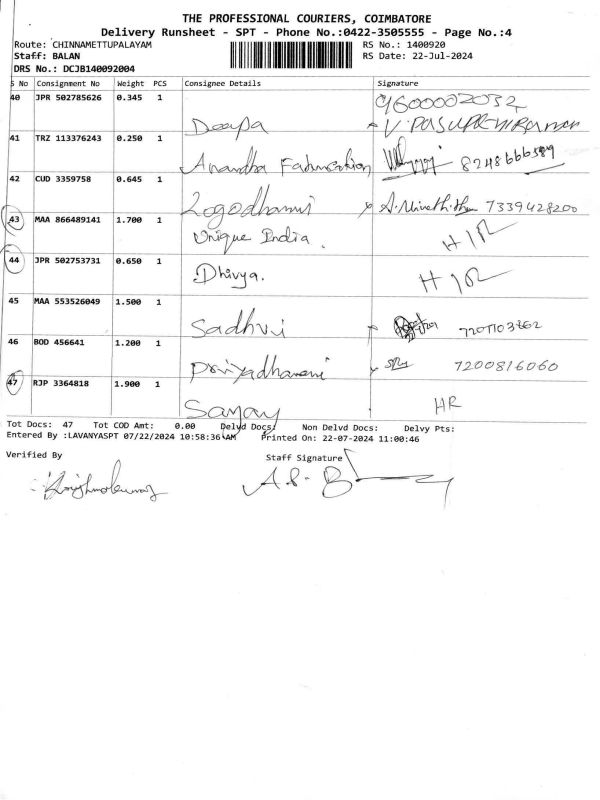 THE PROFESSIONAL COURIERS, COIMBATORE
Delivery Runsheet - SPT - Phone No.:0422-3505555 - Page No.:4
Route: CHINNAMETTUPALAYAM RS No.: 1400920
Staff: BALAN RS Date: 22-Jul-2024
DRS No.: DCJB140092004
S No Consignment No Weight PCS Consignee Details Signature
40 JPR 502785626 0.345 1 Deepa 9600002032
41 TRZ 113376243 0.250 1 Anandha Fabrication
42 CUD 3359758 0.645 1 Logodharani 7339428200
43 MAA 866489141 1.700 1 Unique India.
44 JPR 502753731 0.650 1 Dhivya.
45 MAA 553526049 1.500 1 Sadhvi
46 BOD 456641 1.200 1 Priyadharani 7200816060
47 RJP 3364818 1.900 1 Sanjay HR
Tot Docs: 47 Tot COD Amt: 0.00 Delvd Docs: Non Delvd Docs: Delvy Pts:
Entered By :LAVANYASPT 07/22/2024 10:58:36 AM Printed On: 22-07-2024 11:00:46
Verified By Staff Signature